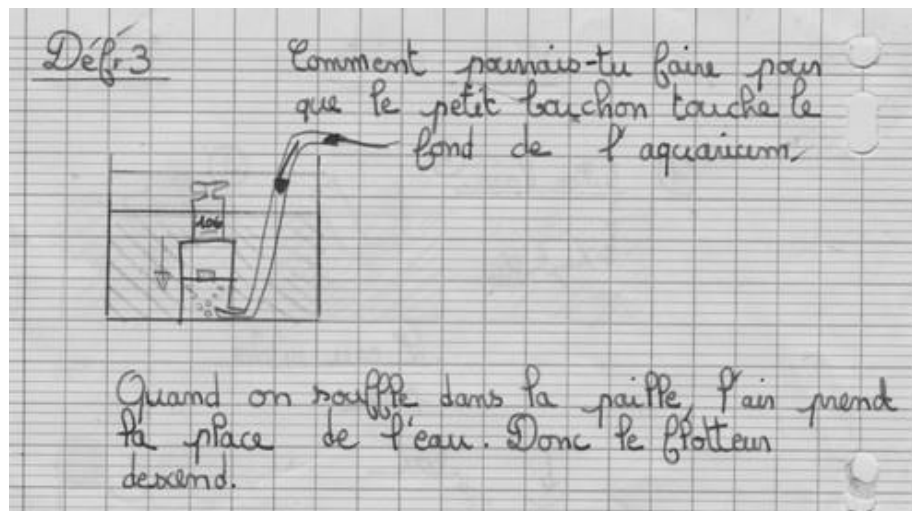 Défi 3
Comment pourrais-tu faire pour
que le petit bouchon touche le
fond de l'aquarium.
10G
Quand on souffle dans la paille, l'air prend
la place de l'eau. Donc le flotteur
descend.